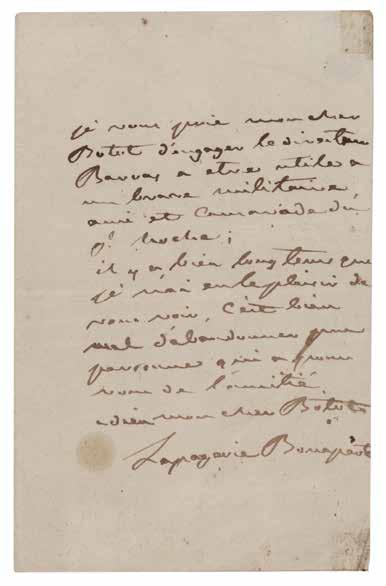 je vous prie mon cher
Botot d'engager le directeur
Barras a etre utile a
un brave militaire
ami et camarade du
g.l hoche;
il y a bien longtems que
je n'ai eu le plaisir de
vous voir, C'est bien
mal d'abandonner une
personne qui a pour
vous de l'amitié.
adieu mon cher Botot
Lapagerie Bonaparte